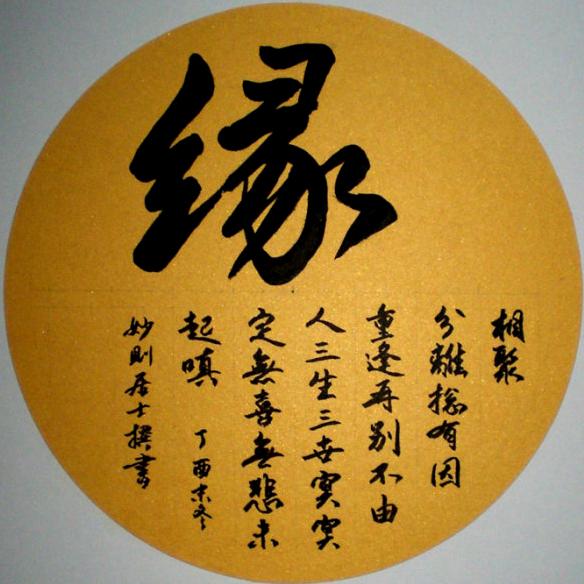 缘
相聚
分離總有因
重逢再别不由
人三生三世冥冥
定無喜無悲未
起嗔
丁酉末冬
妙則居士撰書